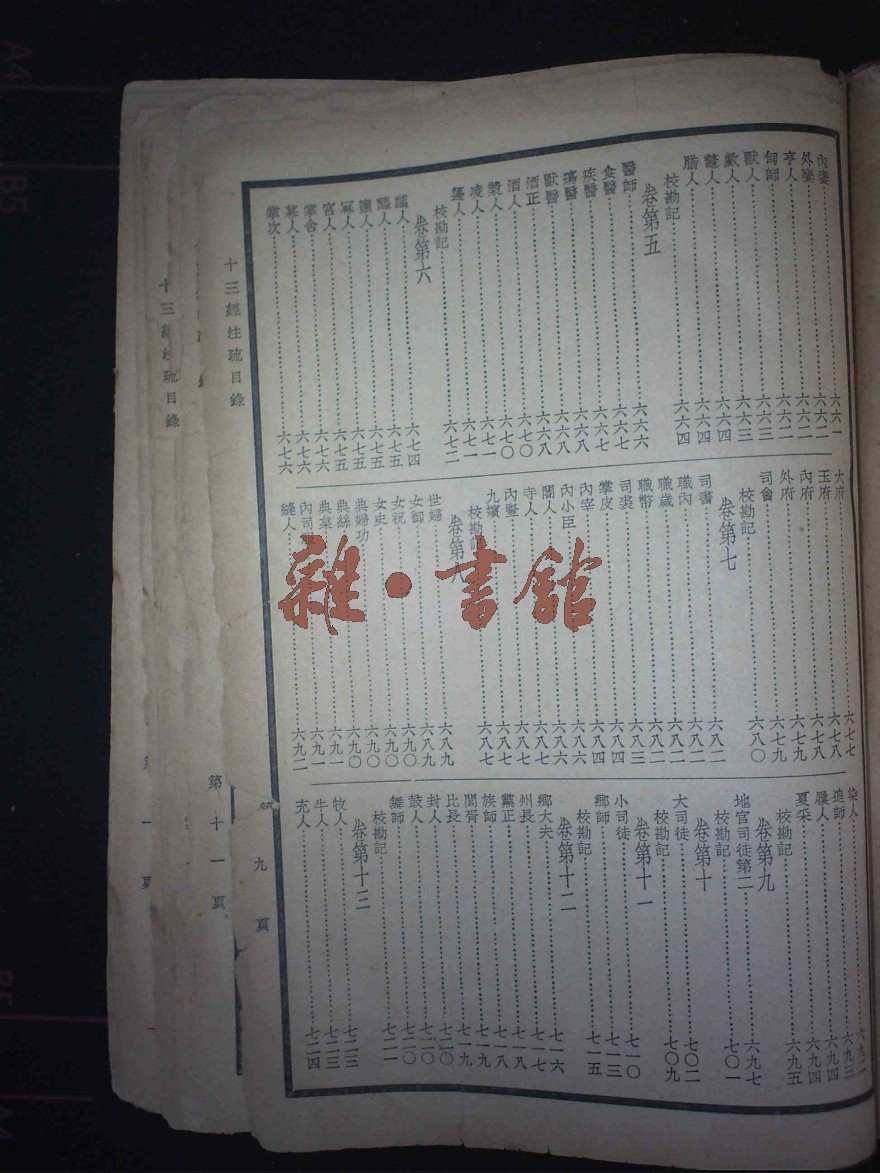 內饔……六六一
外饔……六六二
亨人……六六二
甸師……六六二
獸人……六六三
䱷人……六六三
鼈人……六六四
腊人……六六四
校勘記……六六四
卷第五
醫師……六六六
食醫……六六七
疾醫……六六七
瘍醫……六六八
獸醫……六六八
酒正……六六八
酒人……六七〇
漿人……六七〇
凌人……六七一
籩人……六七一
校勘記……六七二
卷第六
醢人……六七四
醯人……六七五
鹽人……六七五
冪人……六七五
宮人……六七五
掌舍……六七六
幕人……六七六
掌次……六七六
大府……六七七
玉府……六七八
內府……六七八
外府……六七九
司會……六七九
校勘記……六八〇
卷第七
司書……六八二
職內……六八二
職歲……六八二
職幣……六八二
司裘……六八三
掌皮……六八四
內宰……六八四
內小臣……六八六
閽人……六八六
寺人……六八七
內豎……六八七
九嬪……六八七
校勘記……六八七
卷第八
世婦……六八九
女御……六八九
女祝……六九〇
女史……六九〇
典婦功……六九〇
典絲……六九〇
典枲……六九一
內司……六九一
縫人……六九二
染人……六九二
追師……六九三
屨人……六九四
夏采……六九四
校勘記……六九五
卷第九
地官司徒第二……六九七
校勘記……七〇一
卷第十
大司徒……七〇二
校勘記……七〇九
卷第十一
小司徒……七一〇
鄉師……七一三
校勘記……七一五
卷第十二
鄉大夫……七一六
州長……七一七
黨正……七一八
族師……七一八
閭胥……七一九
比長……七一九
封人……七二〇
鼓人……七二〇
舞師……七二〇
校勘記……七二一
卷第十三
牧人……七二三
牛人……七二三
充人……七二四
十三經注疏目錄
九頁
十三經注疏目錄
第十一頁
雜·書館
A4
B5